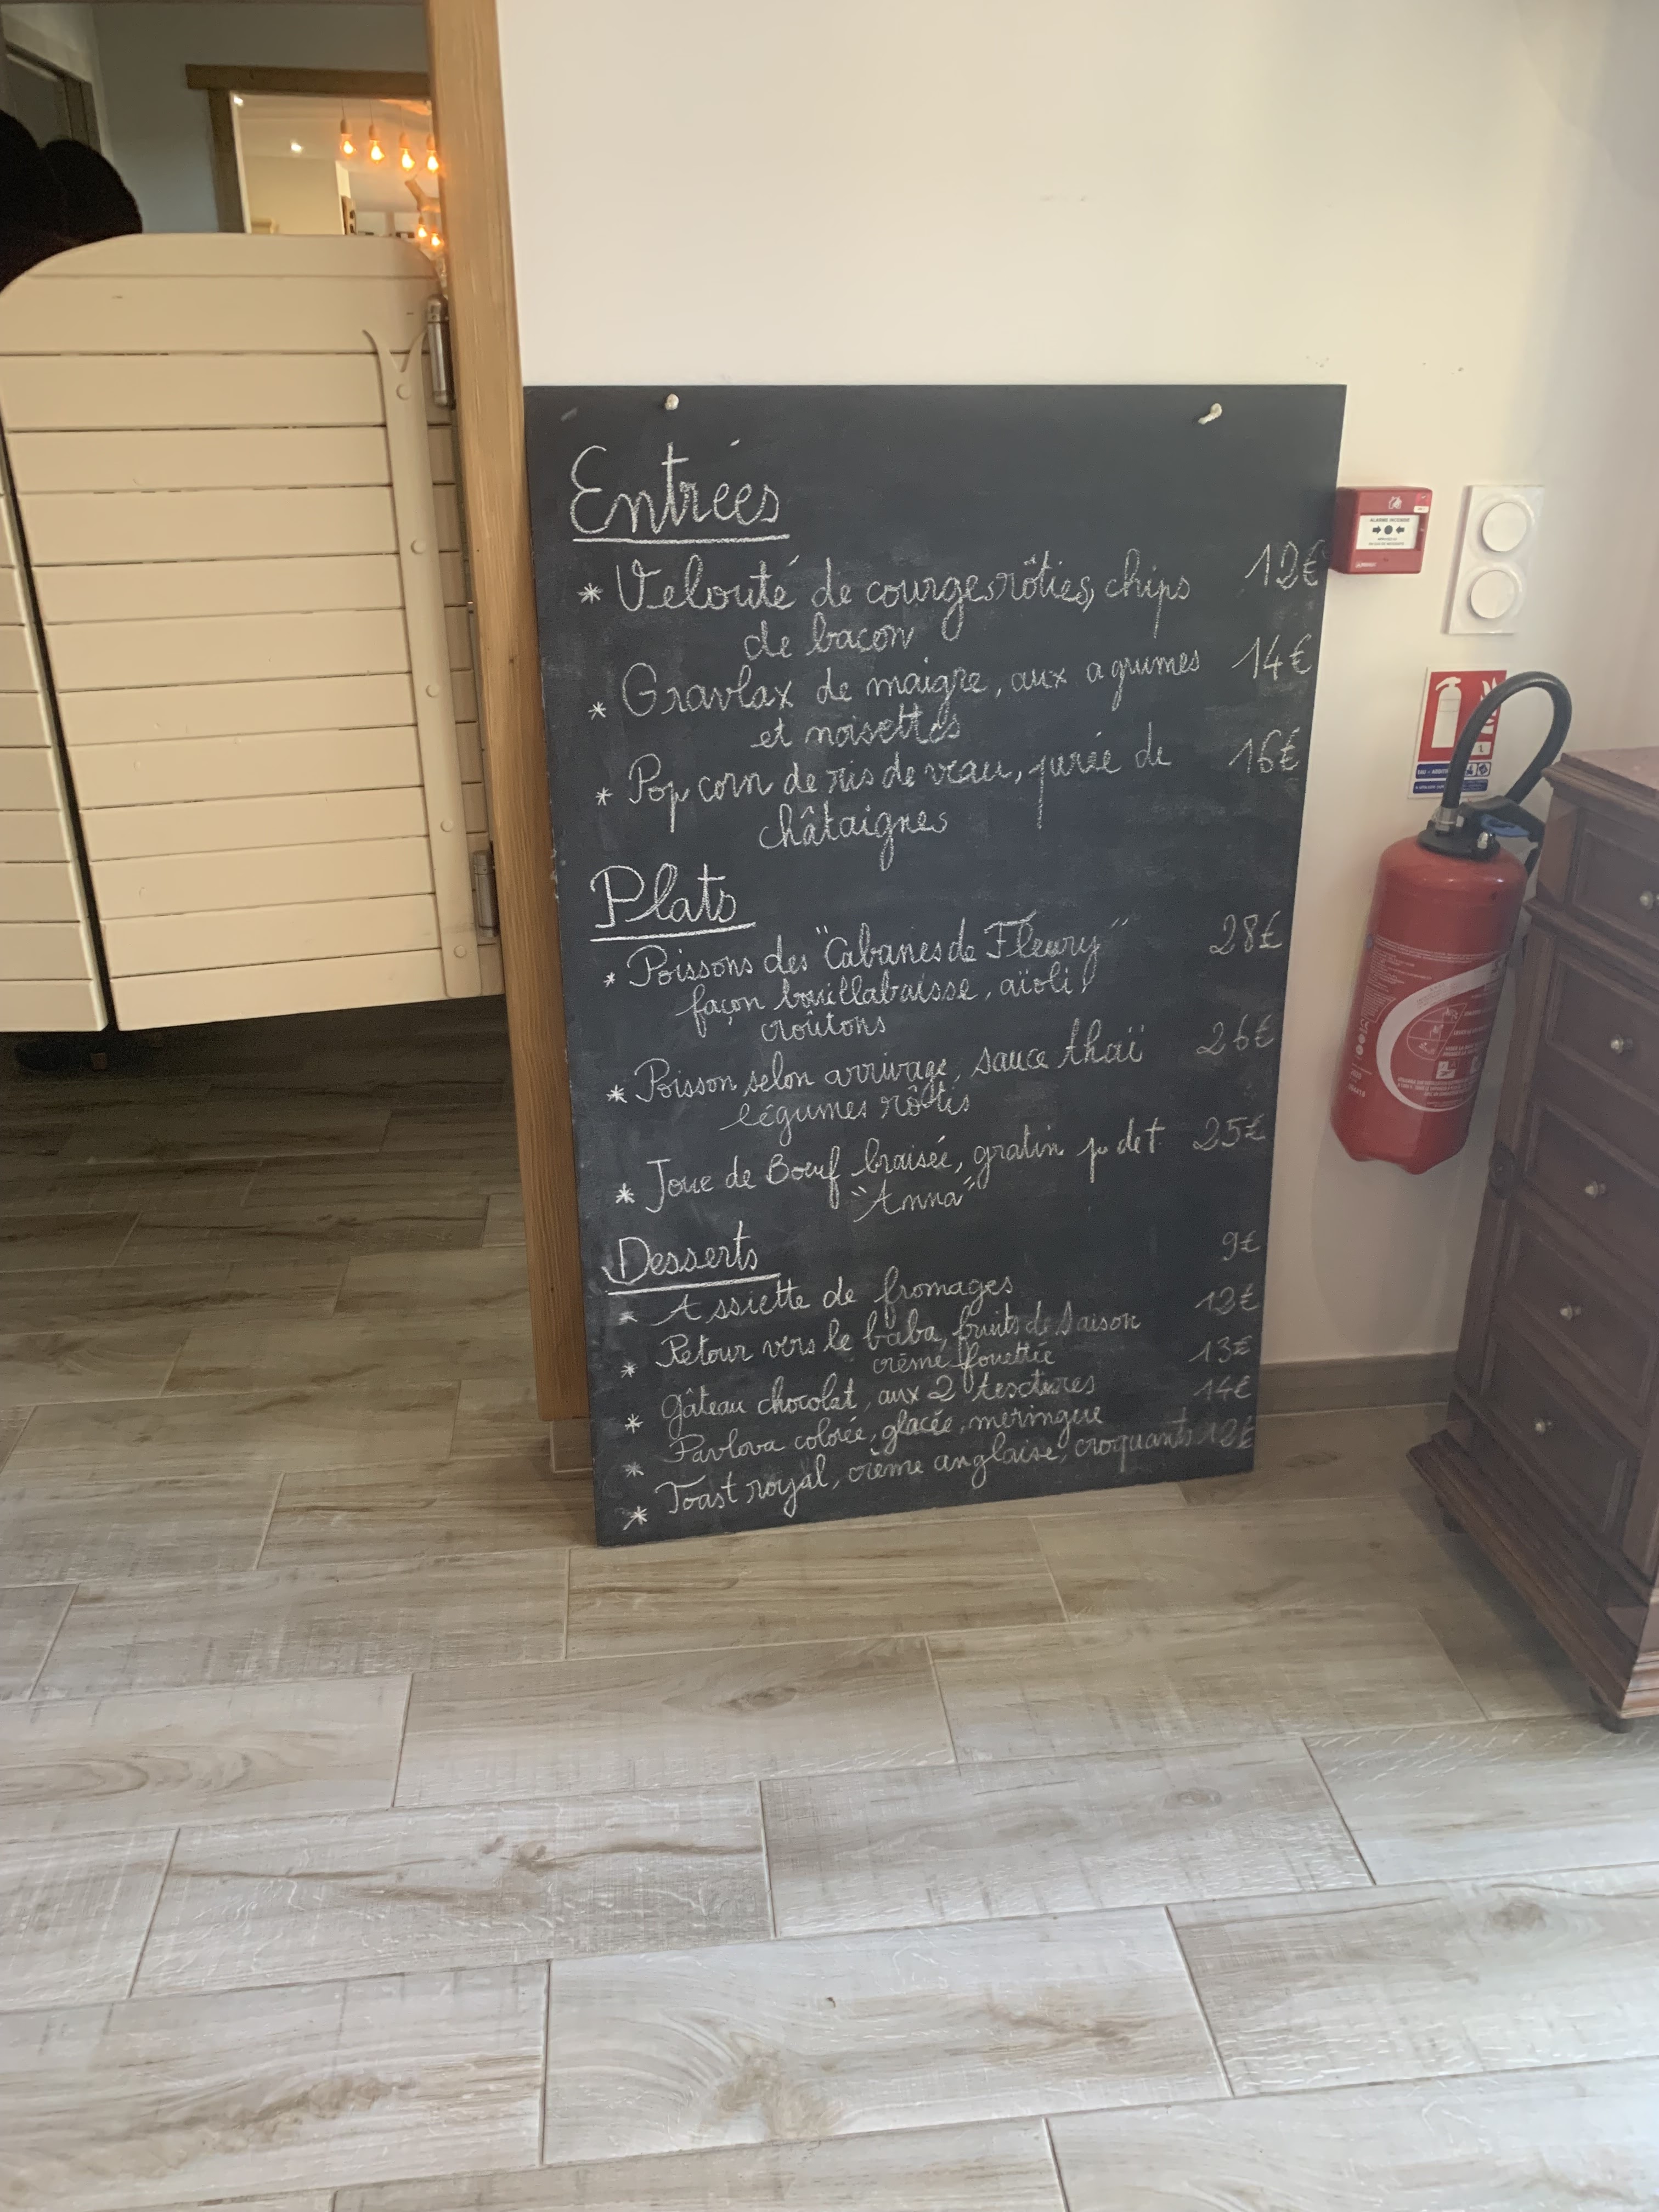 Entrées
* Velouté de courges rôties, chips 12€
de bacon
* Gravlax de maigre, aux agrumes 14€
et noisettes
* Pop corn de ris de veau, purée de 16€
châtaignes
Plats
* Poissons des "Cabanes de Fleury" 28€
façon bouillabaisse, aïoli,
croûtons
* Poisson selon arrivage, sauce thaï 26€
légumes rôtis
* Joue de Boeuf braisée, gratin p det 25€
"Anna"
Desserts
* Assiette de fromages 9€
* Retour vers le baba, fruits de saison 12€
crème fouettée
* Gâteau chocolat, aux 2 textures 13€
* Pavlova colorée, glacée, meringue 14€
* Toast royal, crème anglaise, croquants 12€